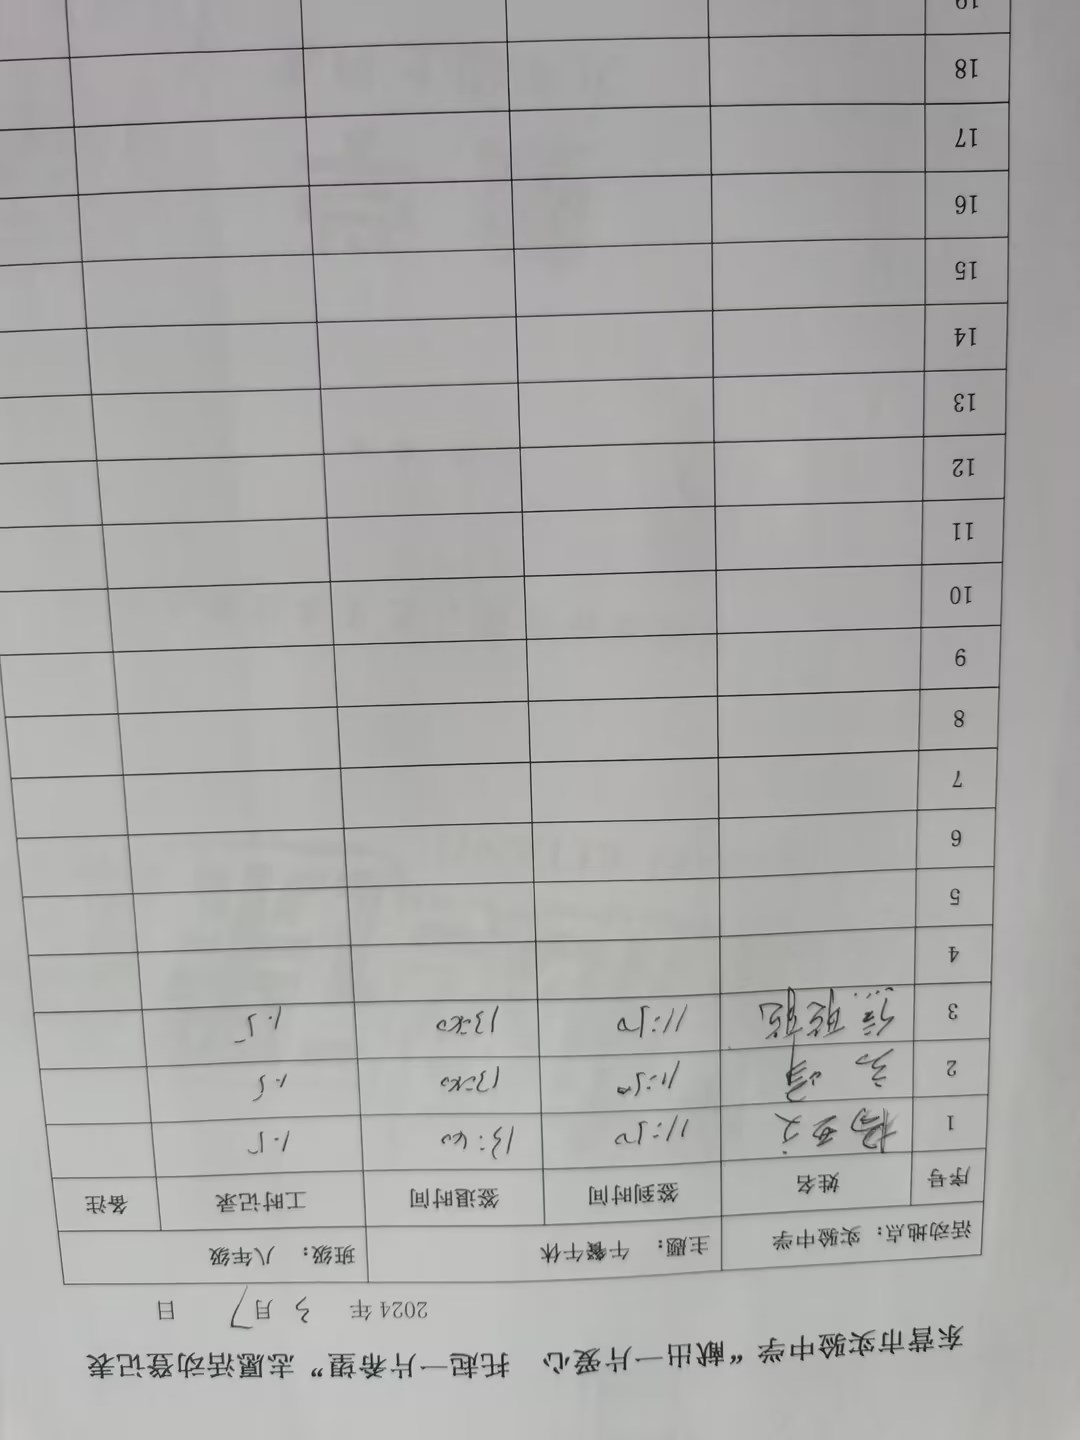 东营市实验中学“献出一片爱心 托起一片希望”志愿活动登记表
2024 年 3 月 7 日
活动地点：实验中学 主题： 午餐午休 班级： 八年级
序号 姓名 签到时间 签退时间 工时记录 备注
1 杨亚文 11:50 13:40 1.5
2 11:50 13:40 1.5
3 11:50 13:40 1.5
4
5
6
7
8
9
10
11
12
13
14
15
16
17
18
19